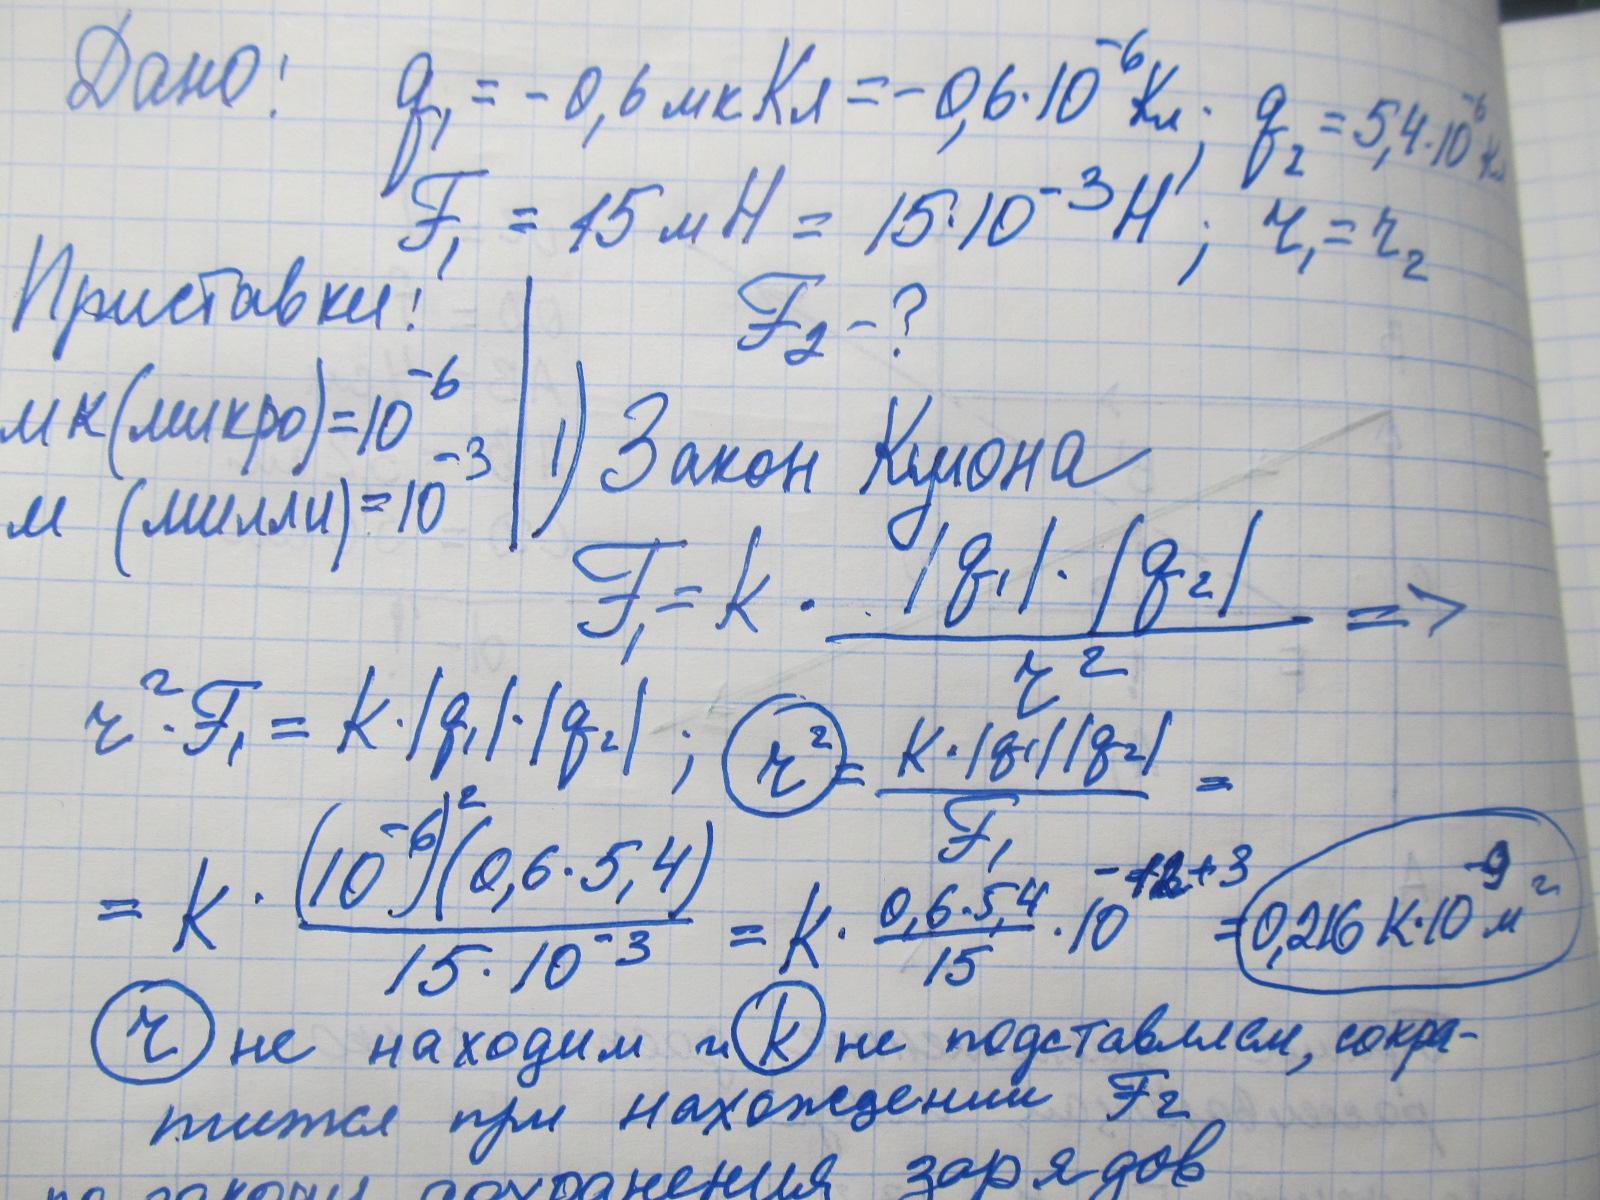 Дано! q₁ = -0,6 мкКл = -0,6·10⁻⁶ Кл; q₂ = 5,4·10⁻⁶ Кл
F₁ = 15 мН = 15·10⁻³ Н; r₁ = r₂
Приставки! F₂ - ?
мк (микро) = 10⁻⁶
м (милли) = 10⁻³
1) Закон Кулона
F₁ = k · |q₁|·|q₂| / r² =>
r²·F₁ = k·|q₁|·|q₂|; r² = k·|q₁||q₂| / F₁ =
= k · (10⁻⁶)²(0,6·5,4) / 15·10⁻³ = k · 0,6·5,4 / 15 · 10⁻¹²⁺³ = 0,216 k·10⁻⁹ м²
r не находим и k не подставляем, сокра-
тится при нахождении F₂
по закону сохранения зарядов